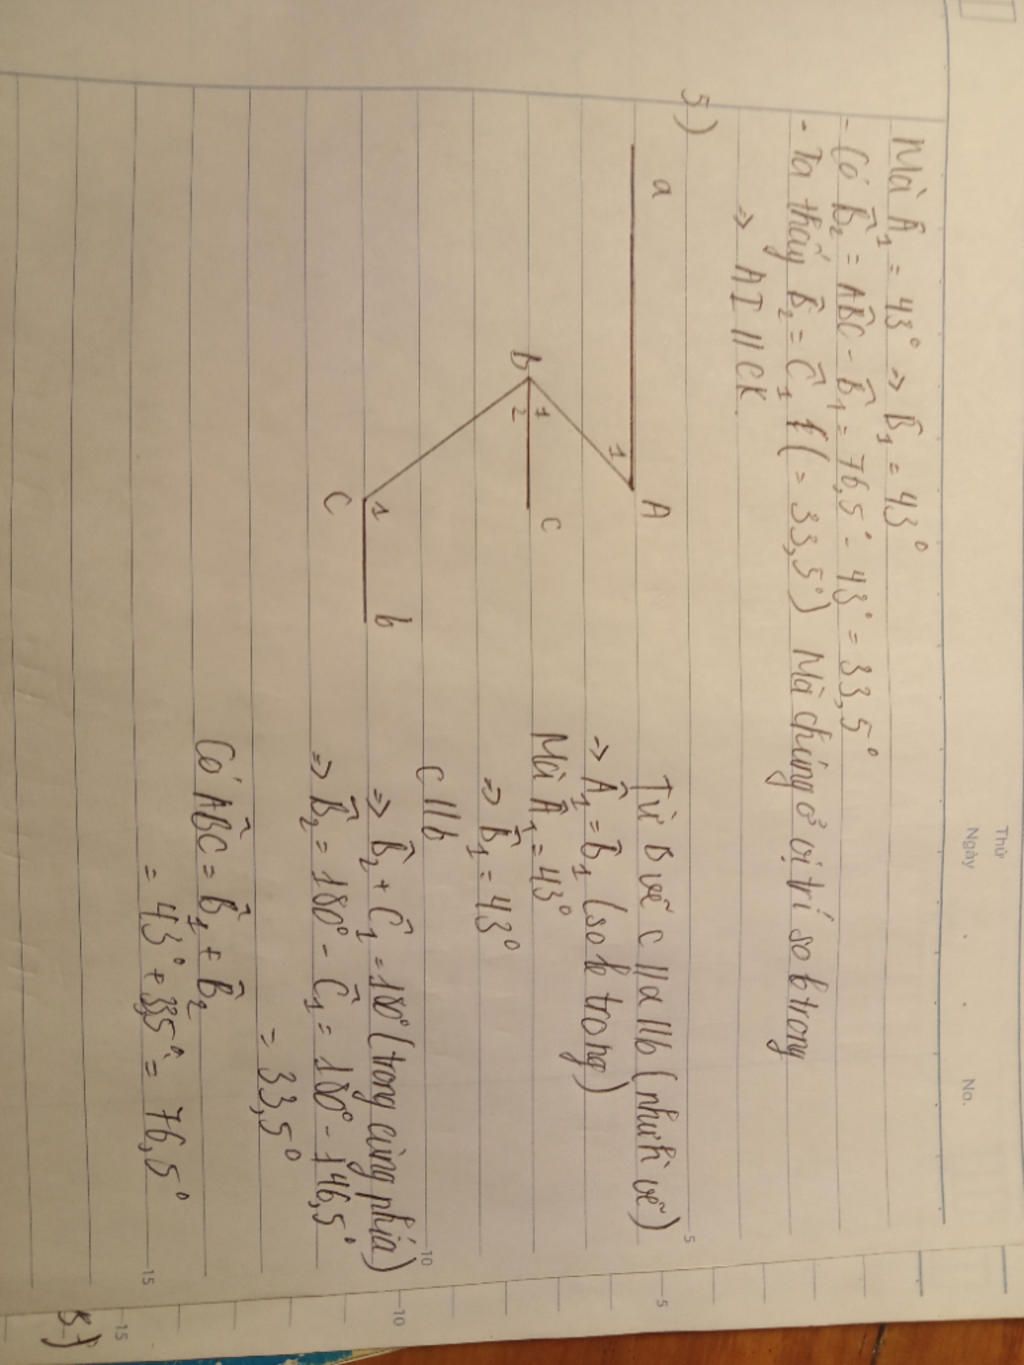 Thứ
Ngày . . No.
Mà Â₁ = 43° => B̂₁ = 43°
- Có B̂₂ = AB̂C - B̂₁ = 76,5° - 43° = 33,5°
- Ta thấy B̂₂ = Ĉ₁ (= 33,5°) Mà chúng ở vị trí so le trong
=> AI // CK.
5)
a
A
1
B
1
2
c
C
1
b
Từ B vẽ c // a // b (như h vẽ)
=> Â₁ = B̂₁ (so le trong)
Mà Â₁ = 43°
=> B̂₁ = 43°
c // b
=> B̂₂ + Ĉ₁ = 180° (trong cùng phía)
=> B̂₂ = 180° - Ĉ₁ = 180° - 146,5°
= 33,5°
Có AB̂C = B̂₁ + B̂₂
= 43° + 33,5° = 76,5°
5
10
15
5
10
15